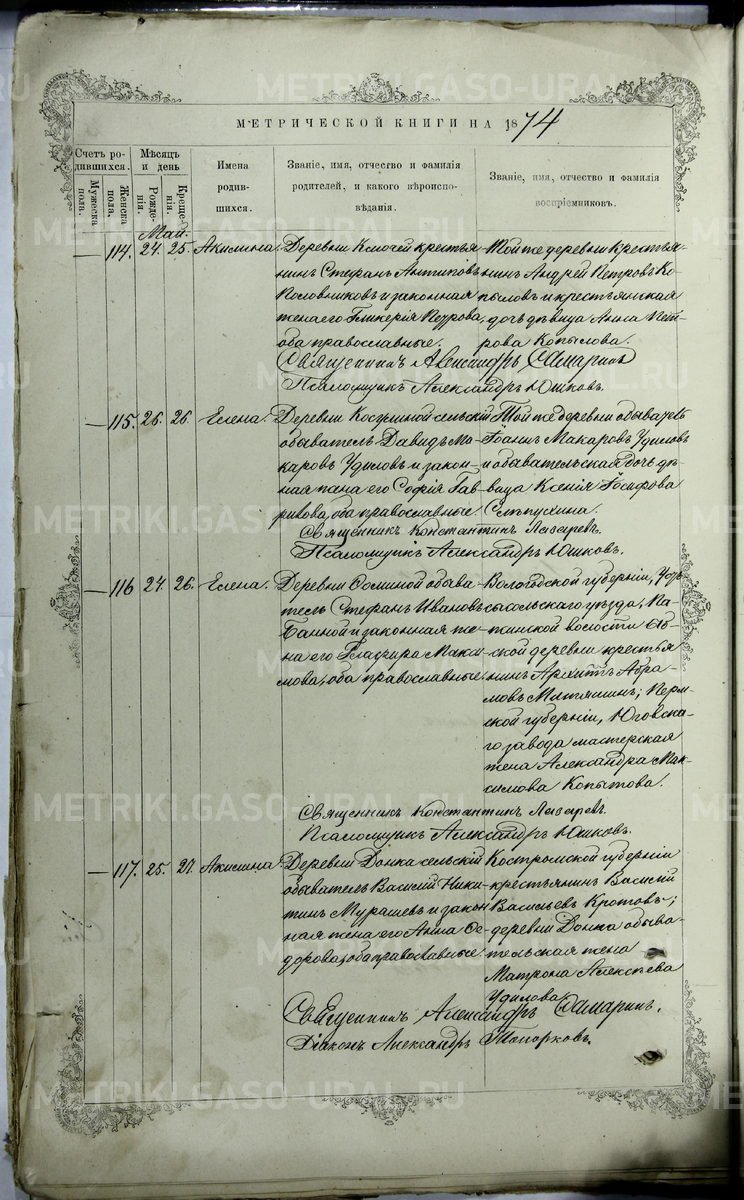 МЕТРИЧЕСКОЙ КНИГИ НА 1874
Счетъ родившихся.
Мѣсяцъ и день
Имена родившихся.
Званіе, имя, отчество и фамилія родителей, и какого вѣроисповѣданія.
Званіе, имя, отчество и фамилія воспріемниковъ.
Мужеска пола.
Женска пола.
Рожденія.
Крещенія.
Май.
— 114. 24. 25. Акилина.
Деревни Ключей крестья
нинъ Стефанъ Антиповъ
Половниковъ и законная
жена его Гликерія Петрова,
оба православные.
Той же деревни Крестья
нинъ Андрей Петровъ Ко
пыловъ и крестьянская
дочь дѣвица Анна Пет
рова Копылова.
Священникъ Александръ Самаринъ
Псаломщикъ Александръ Юшковъ.
— 115. 26. 26. Елена.
Деревни Косулиной сельскій
обыватель Давидъ Ма
каровъ Удиловъ и закон
ная жена его Софія Гав
рилова, оба православные.
Той же деревни обыватель
Іоаннъ Макаровъ Удиловъ
и обывательская дочь дѣ
вица Ксенія Іосифова
Священникъ Константинъ Лазаревъ.
Псаломщикъ Александръ Юшковъ.
— 116 24. 26. Елена.
Деревни обыва
тель Стефанъ Ивановъ
и законная же
на его Макси
мова, оба православные.
Вологодской губерніи, Усть
сысольскаго уѣзда,
волости
ской деревни крестья
нинъ Абра
мовъ Перм
ской губерніи, Юговска
го завода мастерская
жена Александра Мак
симова Копытова.
Священникъ Константинъ Лазаревъ.
Псаломщикъ Александръ Юшковъ.
— 117. 25. 27. Акилина.
Деревни сельскій
обыватель Василій Ники
тинъ Мурашевъ и закон
ная жена его Анна Ѳе
дорова, оба православные.
Костромской губерніи
крестьянинъ Василій
Васильевъ Кротовъ;
деревни обыва
тельская жена
Матрона Алексѣева
Удилова.
Священникъ Александръ Самаринъ.
Діаконъ Александръ Топорковъ.
METRIKI.GASO-URAL.RU